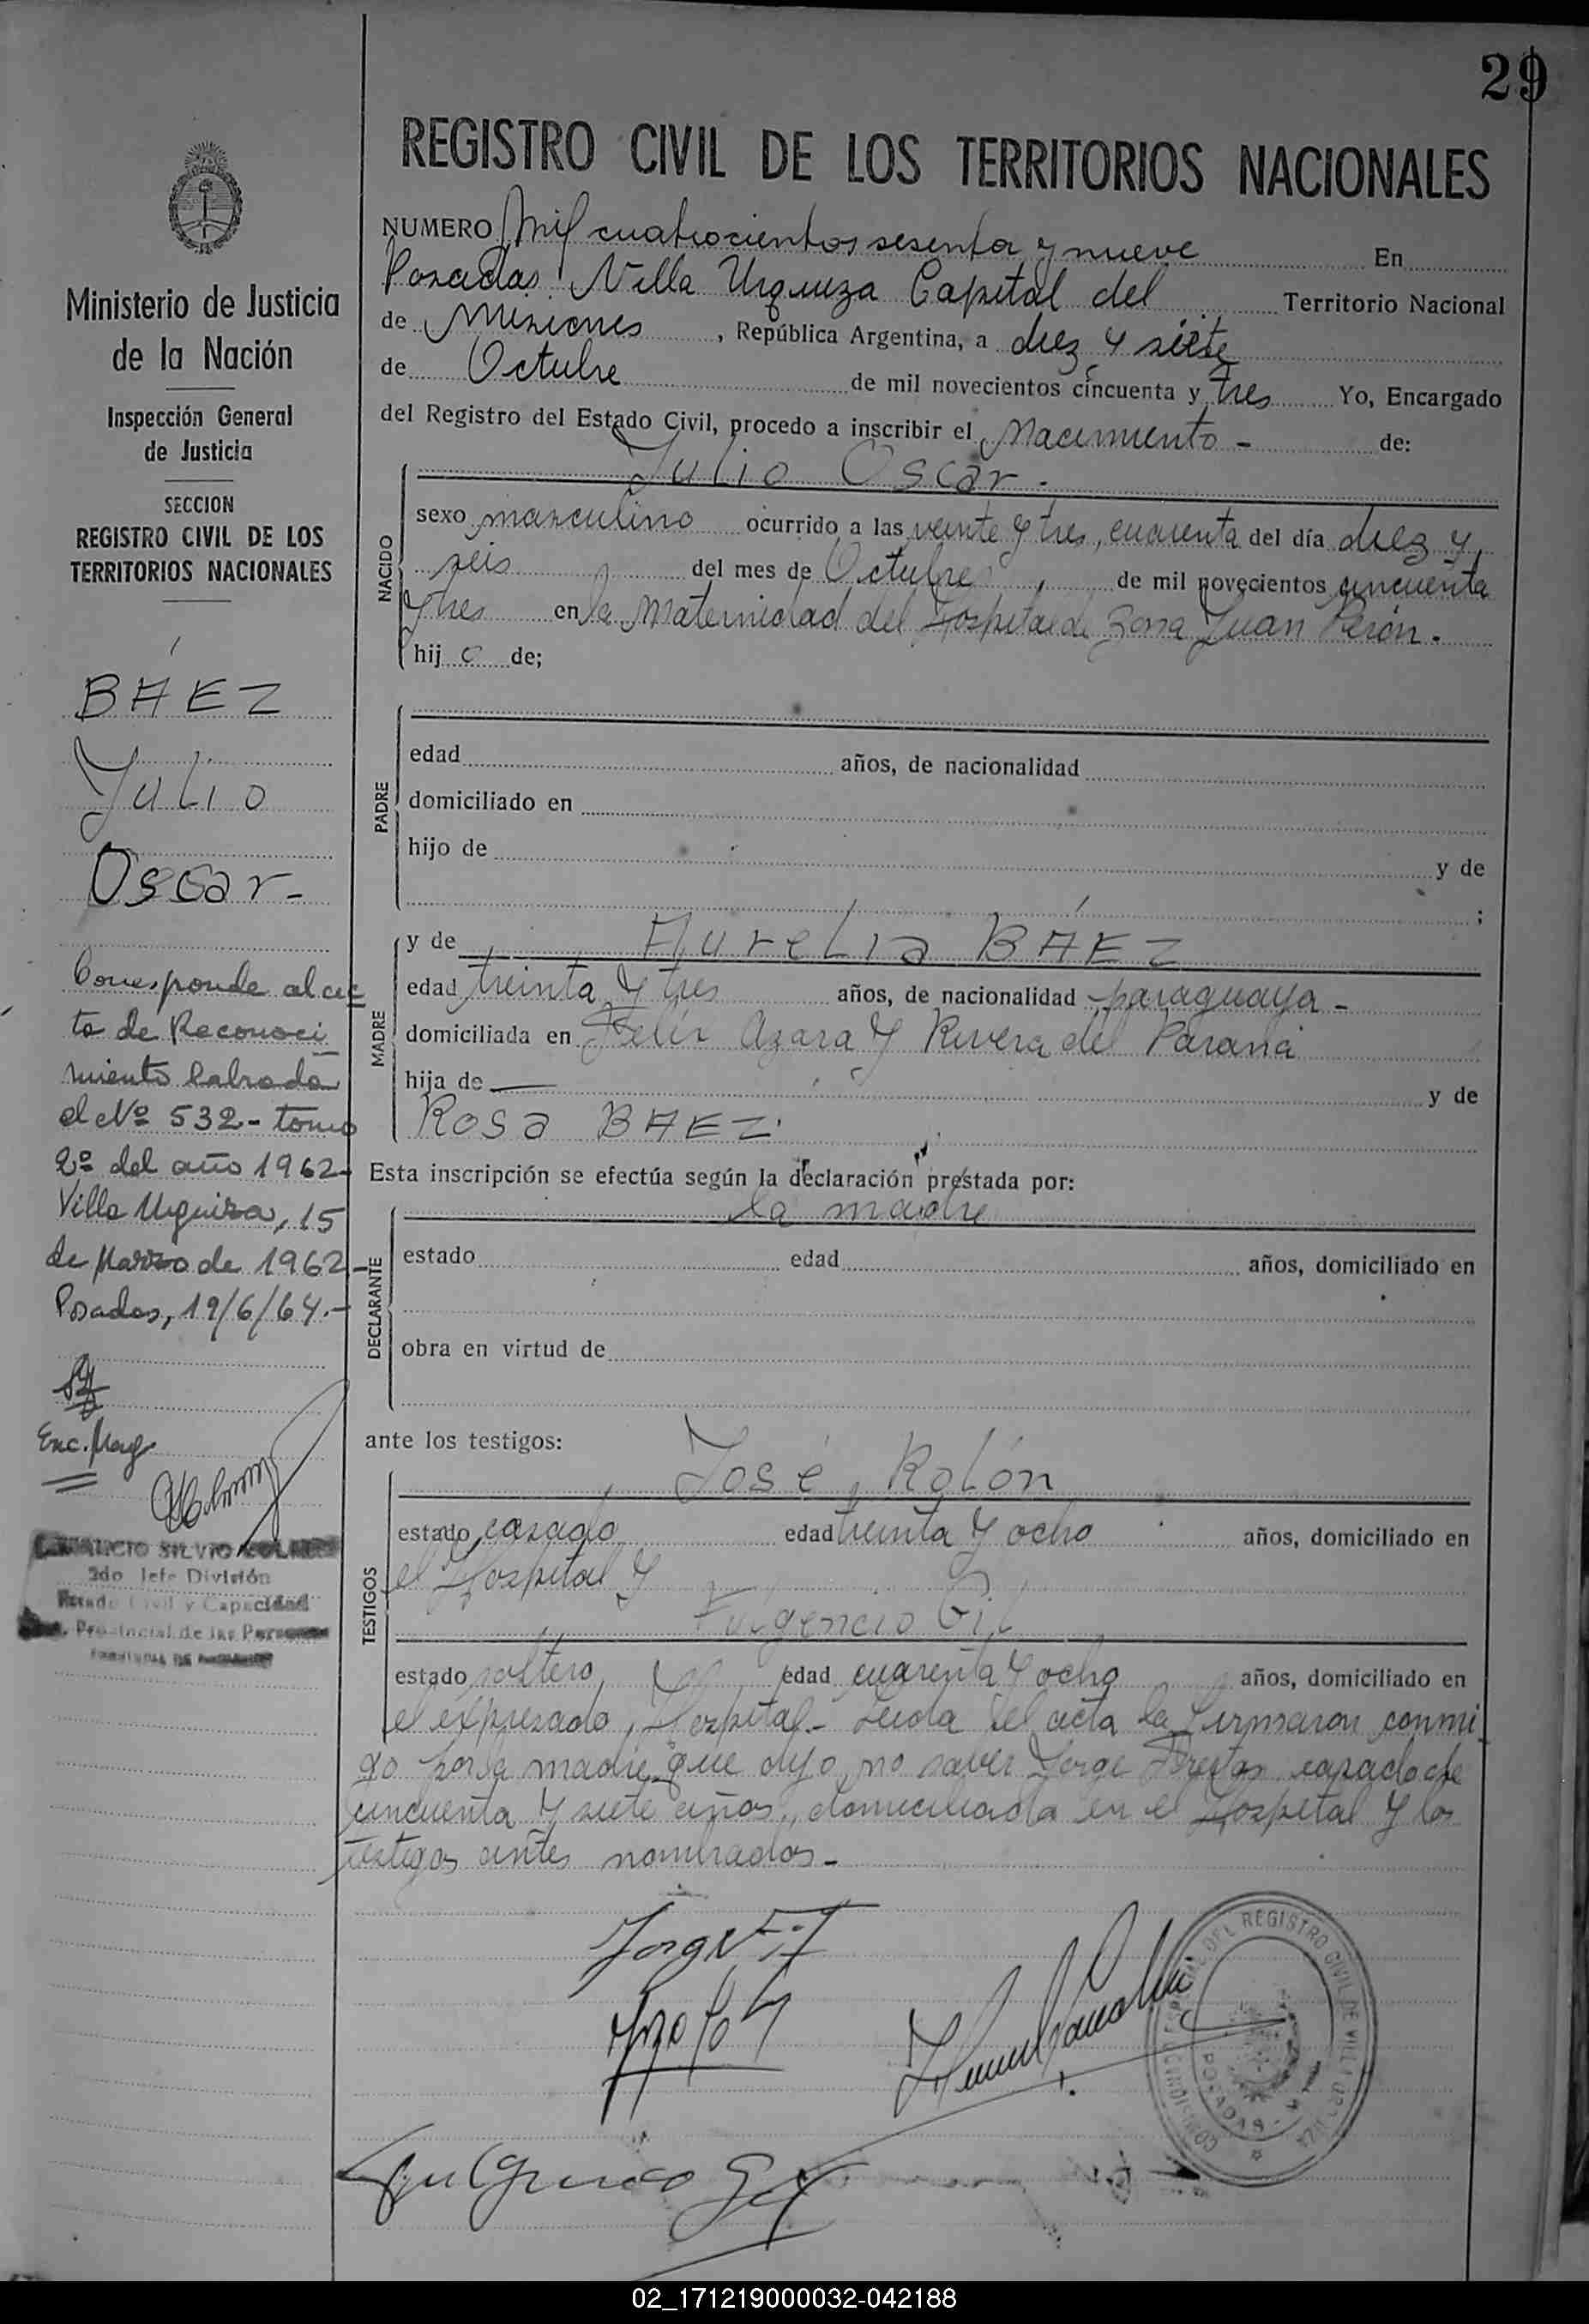 29
REGISTRO CIVIL DE LOS TERRITORIOS NACIONALES
NUMERO Mil cuatrocientos sesenta y nueve En
Posadas Villa Urquiza Capital del Territorio Nacional
de Misiones, República Argentina, a diez y siete
de Octubre de mil novecientos cincuenta y tres Yo, Encargado
del Registro del Estado Civil, procedo a inscribir el Nacimiento - de:
Julio Oscar.
NACIDO
sexo masculino ocurrido a las veinte y tres, cuarenta del día diez y
seis del mes de Octubre, de mil novecientos cincuenta
y tres en la Maternidad del Hospital de Zona Juan Perón.
hijo de;
PADRE
edad años, de nacionalidad
domiciliado en
hijo de y de
;
MADRE
y de Aurelia BAEZ
edad treinta y tres años, de nacionalidad paraguaya -
domiciliada en Felix Azara y Rivera del Paraná
hija de — y de
Rosa BAEZ.
Esta inscripción se efectúa según la declaración prestada por:
la madre
DECLARANTE
estado edad años, domiciliado en
obra en virtud de
ante los testigos:
José Rolón
TESTIGOS
estado casado edad treinta y ocho años, domiciliado en
el Hospital y
Fulgencio Gil
estado soltero, edad cuarenta y ocho años, domiciliado en
el expresado Hospital - Leida el acta la firmaron conmi
go por la madre que dijo no saber Jorge Freitas casado de
cincuenta y siete años, domiciliado en el Hospital y los
testigos antes nombrados -
Fulgencio Gil
COMISIONADO ESPECIAL DEL REGISTRO CIVIL DE VILLA URQUIZA
POSADAS
Ministerio de Justicia
de la Nación
Inspección General
de Justicia
SECCION
REGISTRO CIVIL DE LOS
TERRITORIOS NACIONALES
BÁEZ
Julio
Oscar -
Corresponde al ac
ta de Reconoci
miento labrada
el Nº 532 - tomo
2º del año 1962 -
Villa Urquiza, 15
de Marzo de 1962 -
Posadas, 19/6/64. -
Enc. Marg.
SILVIO
2do Jefe División
Estado Civil y Capacidad
Provincial de las Personas
02_171219000032-042188